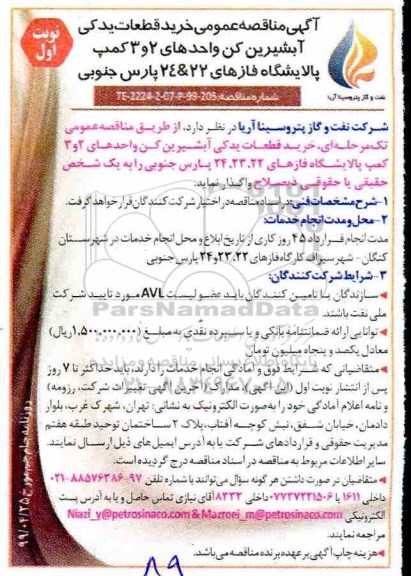 آگهی مناقصه عمومی خرید قطعات یدکی
آبشیرین کن واحدهای ۲و۳ کمپ
پالایشگاه فازهای ۲۲&۲۴ پارس جنوبی
نوبت
اول
نفت و گاز پتروسینا آریا
شماره مناقصه: TE-2224-2-07-P-99-205
شرکت نفت و گاز پتروسینا آریا در نظر دارد، از طریق مناقصه عمومی
تک مرحله‌ای، خرید قطعات یدکی آبشیرین کن واحدهای ۲و۳
کمپ پالایشگاه فازهای ۲۴،۲۳،۲۲ پارس جنوبی را به یک شخص
حقیقی یا حقوقی ذیصلاح واگذار نماید.
۱-شرح مشخصات فنی: در اسناد مناقصه در اختیار شرکت کنندگان قرار خواهد گرفت.
۲-محل و مدت انجام خدمات:
مدت انجام قرارداد ۴۵ روز کاری از تاریخ ابلاغ و محل انجام خدمات در شهرستان
کنگان- شهر سیراف کارگاه فازهای ۲۳،۲۲و۲۴ پارس جنوبی
۳-شرایط شرکت کنندگان:
سازندگان یا تامین کنندگان باید عضو لیست AVL مورد تایید شرکت
ملی نفت باشند.
توانایی ارائه ضمانتنامه بانکی و یا سپرده نقدی به مبلغ (۱,۵۰۰,۰۰۰,۰۰۰ ریال)
معادل یکصد و پنجاه میلیون تومان
متقاضیانی که شرایط فوق و آمادگی انجام خدمات را دارند، باید حداکثر تا ۷ روز
پس از انتشار نوبت اول (این آگهی)، مدارک (آخرین آگهی تغییرات شرکت، رزومه)
و نامه اعلام آمادگی خود را به صورت الکترونیک به نشانی: تهران، شهرک غرب، بلوار
دادمان، خیابان شفق، نبش کوچه آفتاب، پلاک ۲ ساختمان توحید طبقه هفتم
مدیریت حقوقی و قراردادهای شرکت یا به آدرس ایمیل های ذیل ارسال نمایند.
سایر اطلاعات مربوط به مناقصه در اسناد مناقصه درج گردیده است.
متقاضیان در صورت داشتن هر گونه سؤال می‌توانند با شماره تلفن ۹۷-۸۸۵۷۶۳۸۶-۰۲۱
داخلی ۱۶۱۱ یا ۰۷۷۳۷۲۳۱۵۰۶ داخلی ۸۲۳۲ آقای نیازی تماس حاصل و یا به آدرس پست
الکترونیکی Niazi_y@petrosinaco.com & Mazroei_m@petrosinaco.com
مراجعه نمایند.
هزینه چاپ آگهی بر عهده برنده مناقصه می‌باشد.
روزنامه جام جم مورخ ۹۹/۰۴/۲۵
ParsNamadData
پایگاه اطلاع رسانی مناقصه و مزایده
۸۹